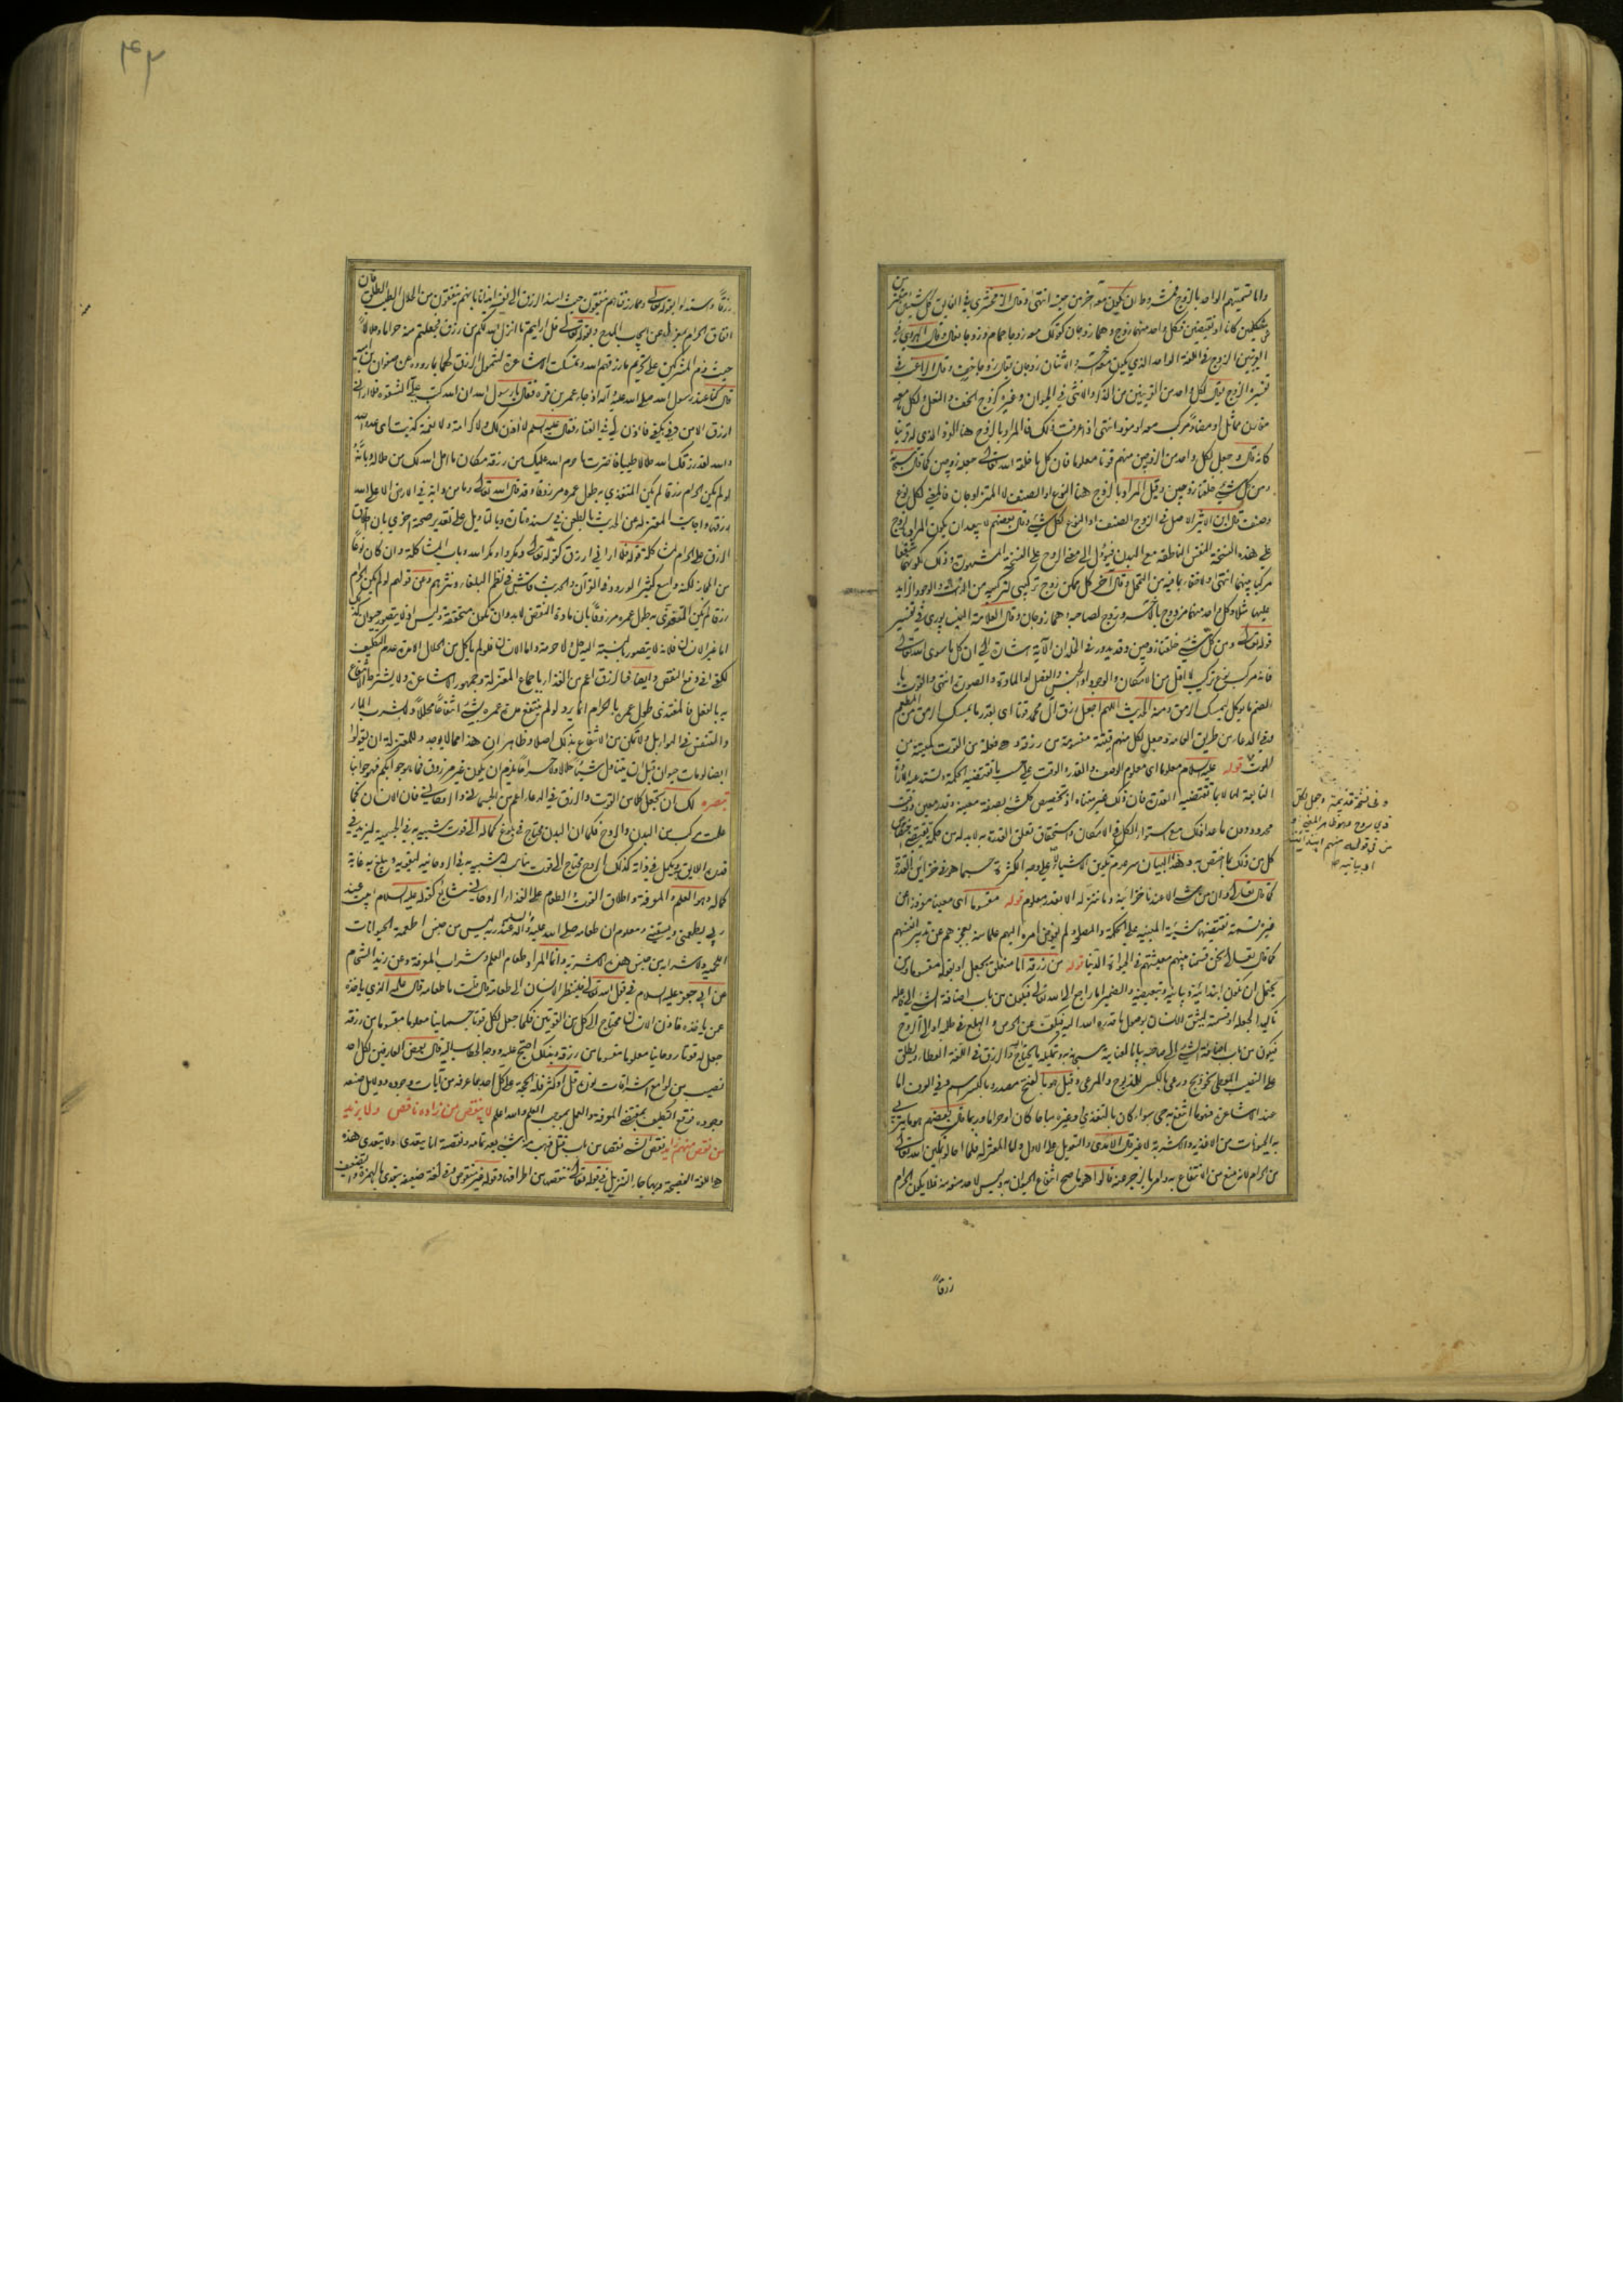 واما تسميتهم الواحد بالزوج فمشروط ان يكون معه آخر من جنسه انتهى وقال الزمخشري في الفايق كل شيئين مقترنين
شكلين كانا او نقيضين فكل واحد منهما زوج وهما زوجان كقولك معه زوجا حمام وزوجا نعال وقال الهروي في
الغريبين الزوج في اللغة الواحد الذي يكون معه آخر والاثنان زوجان يقال زوجا خف وقال الراغب في
تفسيره الزوج يقال لكل واحد من القرينين من الذكر والانثى في الحيوان وغيره كزوج الخف والنعل ولكل ما معه
مقارن مماثل او مضاد مركب معه او مفرد انتهى اذا عرفت ذلك فالمراد بالزوج هنا الفرد الذي له قرين
كانه قال وجعل لكل واحد من الزوجين منهم قوتا معلوما فان كل ما خلقه الله تعالى جعله زوجين كما قال سبحانه
ومن كل شيء خلقنا زوجين وقيل المراد بالزوج هنا النوع او الصنف لا المتزاوجان فالمعنى لكل نوع
وصنف قال ابن الاثير الاصل في الزوج الصنف او النوع لكل شيء وقال بعضهم لا يبعد ان يكون المراد بالزوج
على هذه النسخة النفس الناطقة مع البدن فيؤل الى معنى الروح على النسخة المشهورة وذلك لكونهما شفعا
مركبا بينهما انتهى ولا تخفى ما فيه من التمحل وقال آخر كل ممكن زوج تركيبي لتركبه من الماهية والوجود الزايد
عليها فكل واحد منهما مزدوج بالآخر وزوج لصاحبه وهما زوجان وقال العلامة النيسابوري في تفسير
قوله تعالى ومن كل شيء خلقنا زوجين وقد يدور في الخلد ان الآية اشارة الى ان كل ما سوى الله تعالى
فانه مركب نوع تركيب لا اقل من الامكان والوجود او الجنس والفصل او المادة والصورة انتهى والقوت
بالضم ما يؤكل ليمسك الرمق ومنه الحديث اللهم اجعل رزق آل محمد قوتا اي بقدر ما يمسك الرمق من المطعم
وفي الدعاء من طريق العامة وجعل لكل منهم قيتة مقسومة من رزقه وهي فعلة من القوت كميتة من
الموت قوله عليه السلام معلوما اي معلوم الوصف والقدر والوقت على حسب ما تقتضيه الحكمة وتستدعيه الارادة
التابعة لها لا بما تقتضيه القدرة فان ذلك غير متناه اذ تخصيص كل شيء بصفة معينة وقدر معين ووقت
محدود دون ما عدا ذلك مع استواء الكل في الامكان واستحقاق تعلق القدرة به لا بد له من حكمة تقتضي اختصاص
كل من ذلك بما اختص به وهذا البيان سر عدم تكوين الاشياء على وجه الكثرة حسبما هو في خزاين القدرة
كما قال تعالى وان من شيء الا عندنا خزائنه وما ننزله الا بقدر معلوم قوله مقسوما اي معينا مفروزا عن
غيره قسمة تقتضيها مشية المبنية على الحكمة والمصلحة ولم يفوض امره اليهم علما منه بعجزهم عن تدبير انفسهم
كما قال تعالى نحن قسمنا بينهم معيشتهم في الحيوة الدنيا قوله من رزقه اما متعلق بجعل او بقوله مقسوما ومن
يحتمل ان تكون ابتدائية وبيانية وتبعيضية والضمير اما راجع الى الله تعالى فيكون من باب اضافة الشيء الى فاعله
تأكيدا لجعله وقسمته ليثق الانسان بوصول ما قدره الله اليه فيكف عن الحرص والهلع في طلبه او الى الزوج
فيكون من باب اضافة الشيء الى صاحبه بيانا لعنايته سبحانه به وتمليكه ما يحتاج اليه والرزق في اللغة العطاء ويطلق
على النصيب المعطى كذبح ورعي بالكسر للمذبوح والمرعى وقيل هو بالفتح مصدر وبالكسر اسم وفي العرف اما
عند الاشاعرة فهو ما انتفع به حي سواء كان بالتغذي او غيره مباحا كان او حراما وربما قال بعضهم هو ما يتربى
به الحيوانات من الاغذية والاشربة لا غير قال الآمدي والتعويل على الاول واما المعتزلة فلما احالوا تمكين الله تعالى
من الحرام لانه منع من الانتفاع به وامر بالزجر عنه قالوا هو ما صح انتفاع الحيوان به وليس لاحد منعه منه فلا يكون الحرام
رزقاً
وفي نسخة قديمة وجعل لكل
ذي روح وهو ظاهر المعنى و
من في قوله منهم ابتدائية
او بيانية
٣٤٢
رزقا واستدلوا بقوله تعالى ومما رزقناهم ينفقون حيث اسند الرزق الى نفسه ايذانا بانهم ينفقون من الحلال الطيب الطلق فان
انفاق الحرام بمعزل عن ايجاب المدح وبقوله تعالى قل ارايتم ما انزل الله لكم من رزق فجعلتم منه حراما وحلالا
حيث ذم المشركين على تحريم ما رزقهم الله وتمسكت الاشاعرة لشمول الرزق لهما بما رووه عن صفوان بن امية
قال كنا عند رسول الله صلى الله عليه وآله اذ جاء عمر بن قرة فقال يا رسول الله ان الله كتب علي الشقوة فلا اراني
ارزق الا من دفي بكفي فاذن لي في الغناء فقال عليه السلم لا آذن لك ولا كرامة ولا نعمة كذبت اي عدو الله
والله لقد رزقك الله حلالا طيبا فاخترت ما حرم الله عليك من رزقه مكان ما احل الله لك من حلاله وبانه
لو لم يكن الحرام رزقا لم يكن المتغذي به طول عمره مرزوقا وقد قال الله تعالى وما من دابة في الارض الا على الله
رزقها واجابت المعتزلة عن الحديث بالطعن في سنده تارة وبالتاويل على تقدير صحته اخرى بان اطلاق
الرزق على الحرام لمشاكلة قوله فلا اراني ارزق كقوله تعالى ومكروا ومكر الله وباب المشاكلة وان كان نوعا
من المجاز لكنه واسع كثير الورود في القرآن والحديث فاش في نظم البلغاء ونثرهم وعن قولهم لو لم يكن الحرام
رزقا لم يكن المتغذي به طول عمره مرزوقا بان مادة النقض لا بد وان تكون متحققة وليس اذ لا يتصور حيوان كذلك
اما غير الانسان فلانه لا يتصور بالنسبة اليه حل ولا حرمة واما الانسان فلو لم ياكل من الحلال الا مدة عدم التكليف
لكفى في دفع النقض وايضا فالرزق اعم من الغذاء باجماع المعتزلة وجمهور الاشاعرة ولا يشترط الانتفاع
به بالفعل فالمغتذي طول عمره بالحرام انما يرد لو لم ينتفع مدة عمره بشيء انتفاعا محللا ولا بشرب الماء
والتنفس في الهواء بل ولا تمكن من الانتفاع بذلك اصلا وظاهر ان هذا مما لا يوجد وللمعتزلة ان يقولوا
ايضا لو مات حيوان قبل ان يتناول شيئا حلالا وحراما يلزم ان يكون غير مرزوق فما هو جوابكم فهو جوابنا
تبصرة لك ان تجعل كلا من القوت والرزق في الدعاء اعم من الجسماني والروحاني فان الانسان كما
علمت مركب من البدن والروح فكما ان البدن محتاج في بلوغ كماله الى قوت شبيه به في الجسمية ليزيد في
قدره اللايق ويكمل في ذاته كذلك الروح محتاج الى قوت يناسبه شبيه به في الروحانية ليقويه ويبلغ به غاية
كماله وهو العلم والمعرفة واطلاق القوت والطعام على الغذاء الروحاني شايع كقوله عليه السلام ابيت عند
ربي يطعمني ويسقيني ومعلوم ان طعامه صلى الله عليه وآله عند ربه ليس من جنس اطعمة الحيوانات
اللحمية ولا شرابه من جنس هذه الاشربة وانما المراد طعام العلم وشراب المعرفة وعن زيد الشحام
عن ابي جعفر عليه السلام في قول الله تعالى فلينظر الانسان الى طعامه قال قلت ما طعامه قال علمه الذي ياخذه
عمن ياخذه فاذن الانسان محتاج الى كل من القوتين فكما جعل لكل قوتا جسمانيا معلوما مقسوما من رزقه
جعل له قوتا روحانيا معلوما مقسوما من رزقه وبذلك احتج عليه ووجه الخطاب اليه قال بعض العارفين لكل احد
نصيب من لوامع اشراقات نوره قل او كثر فله الحجة على كل احد بما عرفه من آيات وجوده ودلايل صنعه
وجوده فوقع التكليف بمقتضى المعرفة والعمل بموجب العلم والله اعلم لا ينقص من زاده ناقص ولا يزيد
من نقص منهم زايد نقص الشيء نقصا من باب قتل ذهب منه شيء بعد تمامه ونقصته انا يتعدى ولا يتعدى هذه
هي اللغة الفصيحة وبها جاء التنزيل في قوله تعالى ننقصها من اطرافها وقوله غير منقوص وفي لغة ضعيفة يتعدى بالهمزة والتضعيف